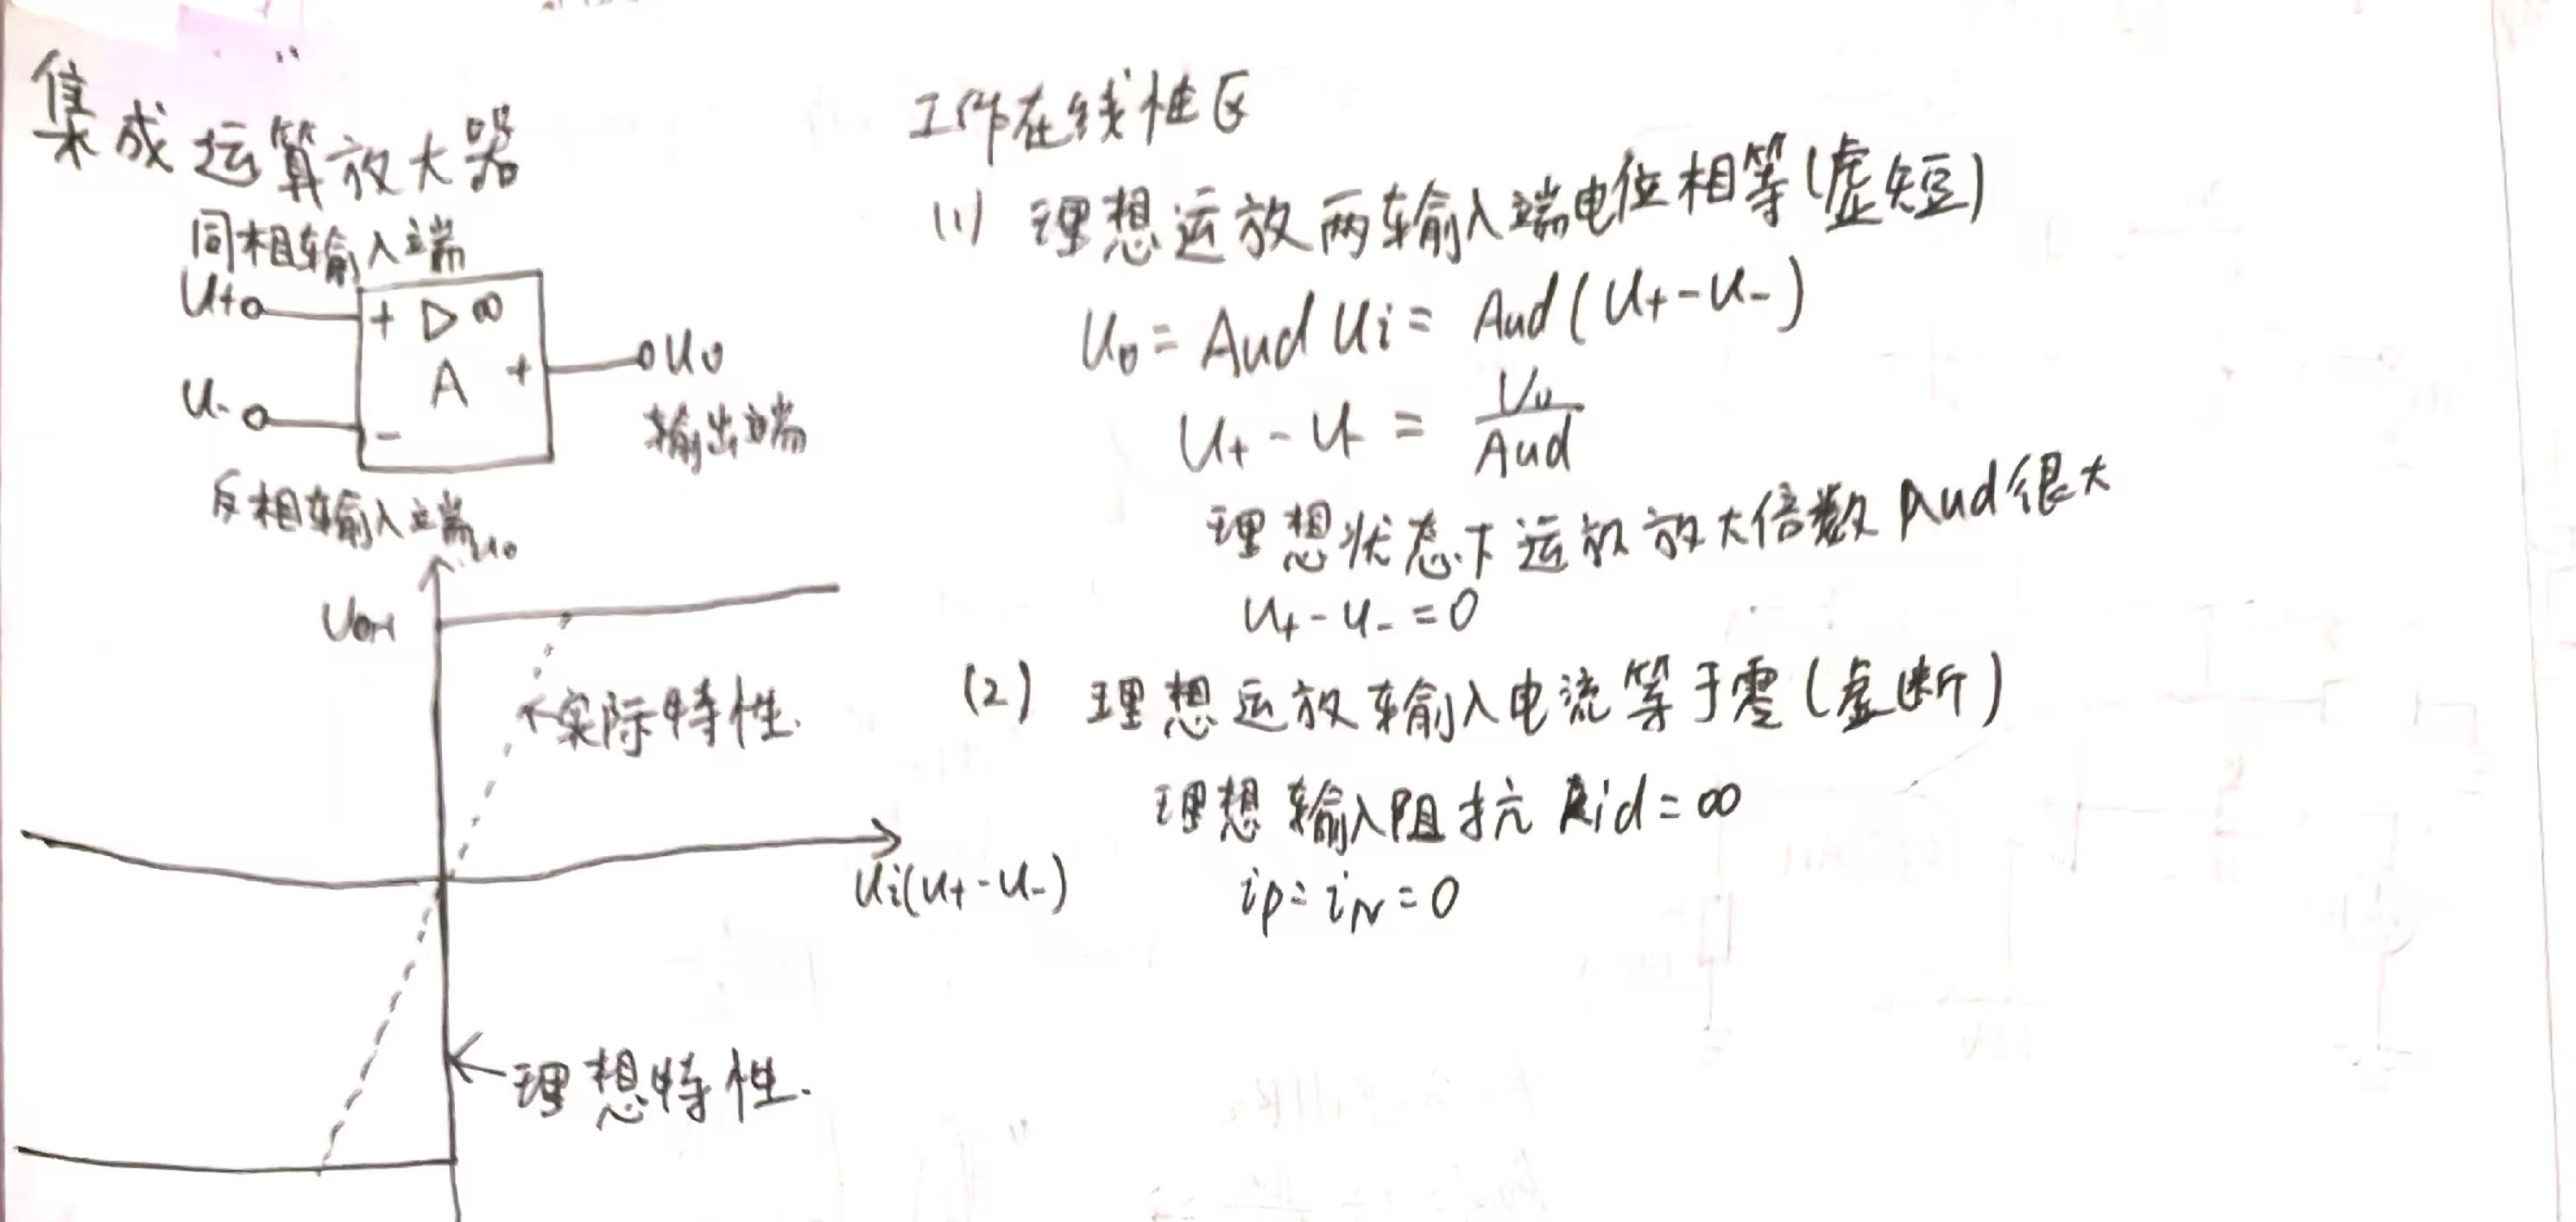 集成运算放大器
同相输入端
U+
+ ▷ ∞
A
+
U-
-
uo
输出端
反相输入端
uo
UOH
实际特性.
ui(u+-u-)
理想特性.
工作在线性区
(1) 理想运放两输入端电位相等(虚短)
Uo = Aud Ui = Aud(U+-U-)
U+ - U- = Uo/Aud
理想状态下运放放大倍数Aud很大
u+-u-=0
(2) 理想运放输入电流等于零(虚断)
理想输入阻抗 Rid=∞
ip=iN=0